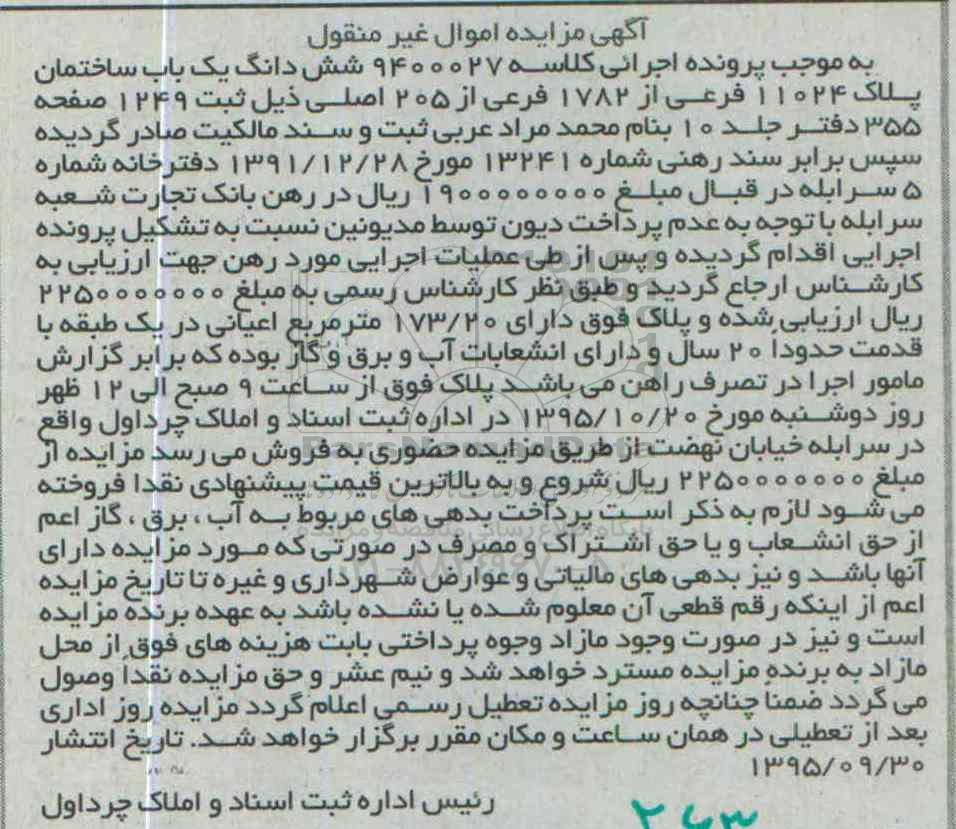 آگهی مزایده اموال غیر منقول
به موجب پرونده اجرائی کلاسه ۹۴۰۰۰۲۷ شش دانگ یک باب ساختمان
پلاک ۱۱۰۲۴ فرعی از ۱۷۸۲ فرعی از ۲۰۵ اصلی ذیل ثبت ۱۲۴۹ صفحه
۳۵۵ دفتر جلد ۱۰ بنام محمد مراد عربی ثبت و سند مالکیت صادر گردیده
سپس برابر سند رهنی شماره ۱۳۲۴۱ مورخ ۱۳۹۱/۱۲/۲۸ دفترخانه شماره
۵ سرابله در قبال مبلغ ۱۹۰۰۰۰۰۰۰۰ ریال در رهن بانک تجارت شعبه
سرابله با توجه به عدم پرداخت دیون توسط مدیونین نسبت به تشکیل پرونده
اجرایی اقدام گردیده و پس از طی عملیات اجرایی مورد رهن جهت ارزیابی به
کارشناس ارجاع گردید و طبق نظر کارشناس رسمی به مبلغ ۲۲۵۰۰۰۰۰۰۰
ریال ارزیابی شده و پلاک فوق دارای ۱۷۳/۲۰ مترمربع اعیانی در یک طبقه با
قدمت حدوداً ۲۰ سال و دارای انشعابات آب و برق و گاز بوده که برابر گزارش
مامور اجرا در تصرف راهن می باشد پلاک فوق از ساعت ۹ صبح الی ۱۲ ظهر
روز دوشنبه مورخ ۱۳۹۵/۱۰/۲۰ در اداره ثبت اسناد و املاک چرداول واقع
در سرابله خیابان نهضت از طریق مزایده حضوری به فروش می رسد مزایده از
مبلغ ۲۲۵۰۰۰۰۰۰۰ ریال شروع و به بالاترین قیمت پیشنهادی نقدا فروخته
می شود لازم به ذکر است پرداخت بدهی های مربوط به آب ، برق ، گاز اعم
از حق انشعاب و یا حق اشتراک و مصرف در صورتی که مورد مزایده دارای
آنها باشد و نیز بدهی های مالیاتی و عوارض شهرداری و غیره تا تاریخ مزایده
اعم از اینکه رقم قطعی آن معلوم شده یا نشده باشد به عهده برنده مزایده
است و نیز در صورت وجود مازاد وجوه پرداختی بابت هزینه های فوق از محل
مازاد به برنده مزایده مسترد خواهد شد و نیم عشر و حق مزایده نقدا وصول
می گردد ضمنا چنانچه روز مزایده تعطیل رسمی اعلام گردد مزایده روز اداری
بعد از تعطیلی در همان ساعت و مکان مقرر برگزار خواهد شد. تاریخ انتشار
۱۳۹۵/۰۹/۳۰
رئیس اداره ثبت اسناد و املاک چرداول